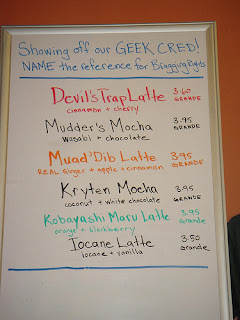 Showing off our GEEK CRED!
NAME the reference for Bragging Rights
Devil's Trap Latte 3.60
cinnamon + cherry GRANDE
Mudder's Mocha 3.95
Wasabi + chocolate GRANDE
Muad'Dib Latte 3.95
REAL Ginger + apple + cinnamon GRANDE
Kryten Mocha 3.95
coconut + white chocolate GRANDE
Kobayashi Maru Latte 3.95
orange + blackberry GRANDE
Iocane Latte 3.50
iocane + vanilla Grande